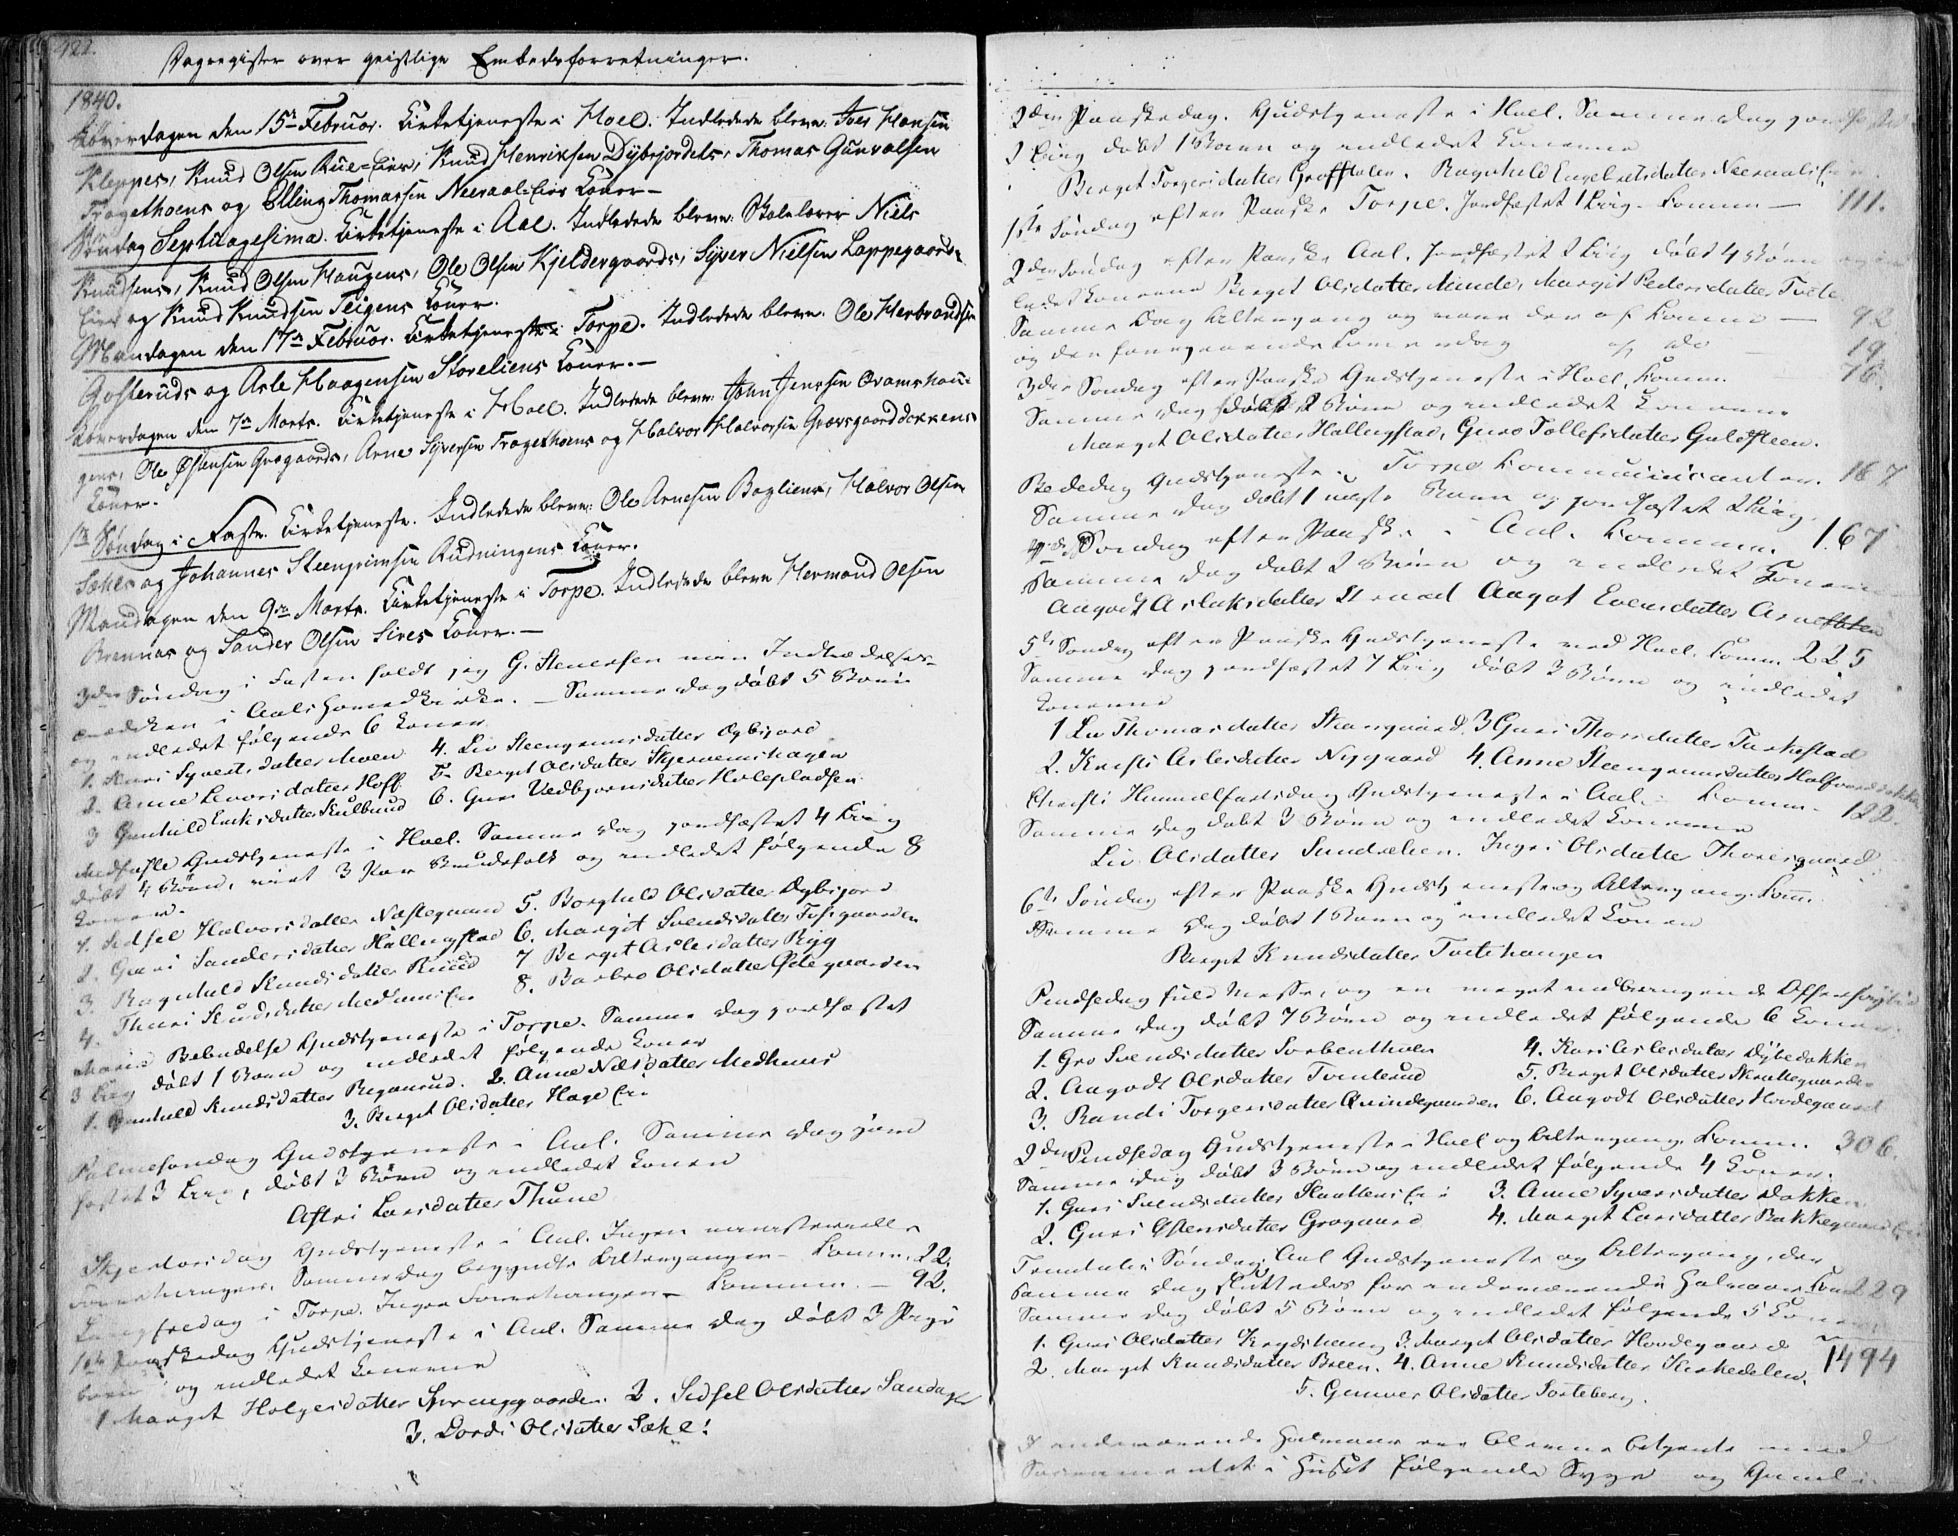 422.
Dagregister over geistlige Embedsforretninger.
1840.
Løverdagen den 15de Februar. Kirketjeneste i Hoel. Indledede bleve: Iver Hansen
Kleppes, Knud Olsen Rue-Eies, Knud Henriksen Dybsjordets, Thomas Gunvalsen
Tragethoens og Elling Thomassen Neeraal-Eies Koner.—
Søndag Septuagesima. Kirketjeneste i Aal. Indledede bleve: Skolelærer Niels
Knudsens, Knud Olsen Haugens, Ole Olsen Kjeldergaards, Syver Nielsen Lappegaards-
Eies og Knud Knudsen Teigens Koner.
Mandagen den 17de Februar. Kirketjeneste i Torpe. Indledede bleve: Ole Herbrandsen
Gosteruds og Asle Haagensen Storeliens Koner.—
Løverdagen den 7de Marts. Kirketjeneste i Hoel. Indledede bleve: John Jenssen Qvamshau-
gens, Ole Østensen Grøgaards, Arne Syversen Tragethoens og Halvor Halvorsen Grøvsgaarddokkens
Koner.
1ste Søndag i Faste. Kirketjeneste. Indledede bleve: Ole Arnesen Bagliens, Halvor Olsen
Sækls og Johannes Steengrimsen Rudningens Koner.
Mandagen den 9de Marts. Kirketjeneste i Torpe. Indledede bleve Hermond Olsen
Brennas og Sander Olsen Sires Koner.—
3die Søndag i Fasten holdt jeg G. Stenersen min Indtrædelses-
prædiken i Aals Hovedkirke. — Samme Dag døbt 5 Børn
og indledet følgende 6 Koner
1. Kari Syversdatter Moen 4. Liv Steengrimsdatter Opbigard
2. Anne Levorsdatter Hoff 5. Berget Olsdatter Skjervemshagen
3 Gunhild Eriksdatter Kulbund 6. Guri Vedbjørnsdatter Holepladsen
Midfaste Gudstjeneste i Hoel. Samme Dag jordfæstet 4 Liig
døbt 4 Børn, viet 3 Par Brudefolk og indledet følgende 8
Koner.
1. Sidsel Halvorsdatter Næstegaard 5. Borghild Olsdatter Dybsjord
2. Guri Sandersdatter Hallingstad 6. Margit Svendsdatter Tofsgaarden
3. Ragnhild Knudsdatter Ruud 7 Berget Aslesdatter Ryg
4. Thuri Knudsdatter Medhuus Eie 8. Barbro Olsdatter Ødegaarden
Mariæ Bebudelse Gudstjeneste i Torpe. Samme Dag jordfæstet
3 Liig døbt 1 Barn og indledet følgende Koner
1. Gunhild Knudsdatter Reganrud. 2. Anne Nilsdatter Medhuus
3. Berget Olsdatter Hage Eie
Palmesøndag Gudstjeneste i Aal. Samme Dag jord
fæstet 3 Liig, døbt 3 Børn og indledet Konen
Astri Larsdatter Thune
Skjertorsdag Gudstjeneste i Aal. Ingen ministerielle
Forretninger. Samme Dag begyndte Altergangen — Komm. 22.
Langfredag i Torpe. Ingen Forretninger — Kommun. — 92.
1ste Paaskedag Gudstjeneste i Aal. Samme Dag døbt 3 Pige
børn og indledet Konerne
1 Marget Holgersdatter Sprenggaarden. 2. Sidsel Olsdatter Sandager
3. Dordi Olsdatter Sækl!
2den Paaskedag. Gudstjeneste i Hoel. Samme Dag jordfæstet
2 Liig døbt 1 Barn og indledet Konerne
Berget Torgersdatter Groffdalen. Ragnhild Engebretsdatter Neeraals Eie
1ste Søndag efter Paaske Torpe. Jordfæstet 1 Liig. Komm. — 111.
2den Søndag efter Paaske Aal. Jordfæstet 2 Liig døbt 4 Børn og ind
ledet Konerne Berget Olsdatter Minde, Margit Pedersdatter Tvete
Samme Dag Altergang og vare der af Komm. — 92
og den foregaaende Løverdag af do — 19
3die Søndag efter Paaske Gudstjeneste i Hoel. Komm. 76.
Samme Dag døbt 2 Børn og indledet Konerne
Marget Olsdatter Hallingstad, Guro Tollefsdatter Guldsteen.
Bededag Gudstjeneste i Torpe Kommunicanter. 167
Samme Dag døbt 1 uægte Barn og jordfæstet 2 Liig.
4de Søndag efter Paaske i Aal. Komm. 167
Samme Dag døbt 2 Børn og indledet Konerne
Aagodt Aslaksdatter Strand Aagot Evensdatter Arnefteten
5te Søndag efter Paaske Gudstjeneste ved Hoel. Komm. 225
Samme Dag jordfæstet 7 Liig døbt 3 Børn og indledet
Konerne
1 Liv Thomasdatter Skarsgaard. 3 Guri Thorsdatter Torkestad
2. Kristi Aslesdatter Nygaard 4. Anne Steengrimsdatter Halfvordsdokken
Christi Himmelfartsdag Gudstjeneste i Aal. — Komm. 122.
Samme Dag døbt 3 Børn og indledet Konerne
Liv Olsdatter Sundrelien. Ingri Olsdatter Thoresgaard
6te Søndag efter Paaske Gudstjeneste og Altergang. Kom.
Samme Dag døbt 1 Barn og indledet Konen
Berget Knudsdatter Tvetehaugen
Pindsedag fuld Messe, og en meget indbringende Offerhøitid
Samme Dag døbt 7 Børn og indledet følgende 6 Koner
1. Gro Svendsdatter Sorbenthoen 4. Kari Aslesdatter Dybedokken
2. Aagodt Olsdatter Tveterud 5. Berget Olsdatter Skrattegaarden
3. Randi Torgersdatter Qvindegaarden 6. Aagodt Olsdatter Hovdegaard
2den Pindsedag Gudstjeneste i Hoel og Altergang. Komm. 306.
Samme Dag døbt 3 Børn og indledet følgende 4 Koner.
1. Guri Svendsdatter Slaattens Eie 3. Anne Syversdatter Dokken
2. Guri Østensdatter Grøgaard 4. Marget Larsdatter Bakkegaard Eie
Trinitatis Søndag Aal Gudstjeneste og Altergang, der
samme Dag sluttedes for indeværende Halvaar Kom 229
Samme Dag døbt 5 Børn og indledet følgende 5 Koner
1. Guri Olsdatter Krydshaug 3. Marget Olsdatter Hovdegaard
2. Marget Knudsdatter Breen. 4. Anne Knudsdatter Kirkedelen. 1494
5. Gunvor Olsdatter Sorteberg.
I indeværende Halvaar ere blevne betjente med
Sacramentet i Huset følgende Syge og Gamle